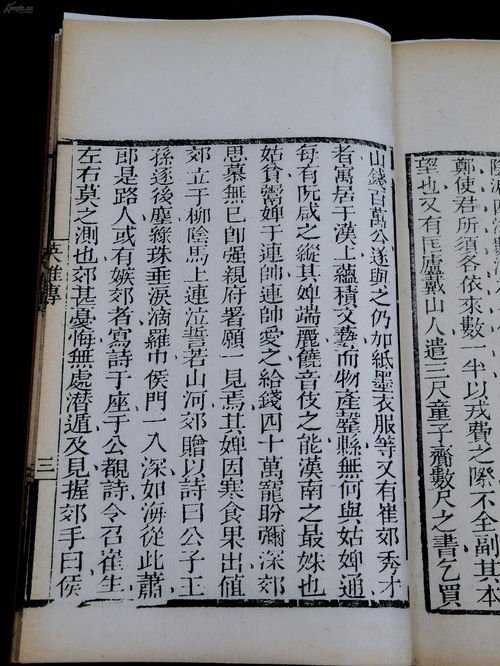 鄭使君所須各依來數一半以戎費之際不全副其本
望也又有匡廬戴山人遣三尺童子齎數尺之書乞買
山錢百萬公遂與之仍加紙墨衣服等又有崔郊秀才
者寓居于漢上蘊積文藝而物產罄縣無何與姑婢通
每有阮咸之縱其婢端麗饒音伎之能漢南之最姝也
姑貧鬻婢于連帥連帥愛之給錢四十萬寵盼彌深郊
思慕無已即強親府署願一見焉其婢因寒食果出值
郊立于柳陰馬上連泣誓若山河郊贈以詩曰公子王
孫逐後塵綠珠垂淚滴羅巾侯門一入深如海從此蕭
郎是路人或有嫉郊者寫詩于座于公覩詩令召崔生
左右莫之測也郊甚憂悔無處潛遁及見握郊手曰侯
英雄傳
三